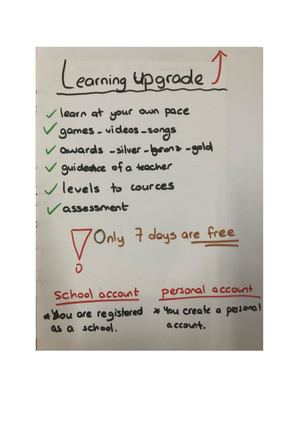 Learning Upgrade
learn at your own pace
games - videos - songs
awards - silver - bronz - gold
guidence of a teacher
levels to cources
assessment
Only 7 days are free
school account personal account
* You are registered * You create a personal
as a school. account.